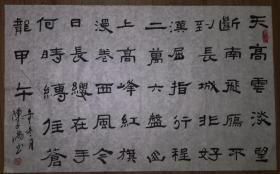 天高雲淡望
斷南飛雁不
到長城非好
漢屈指行程
二萬六盤山
上高峰紅旗
漫卷西風令
日長纓在手
何時縛住蒼
龍甲午